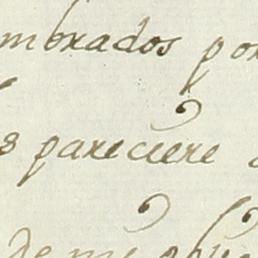 mbrados por
s pareciere
de mi